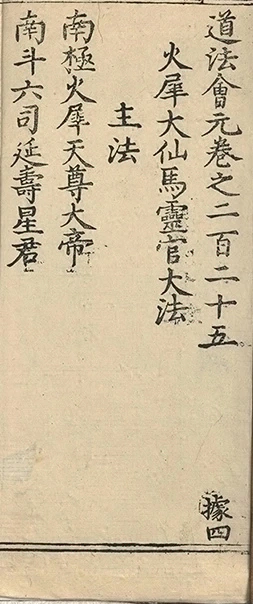 道法會元卷之二百二十五
據四
火犀大仙馬靈官大法
主法
南極火犀天尊大帝
南斗六司延壽星君